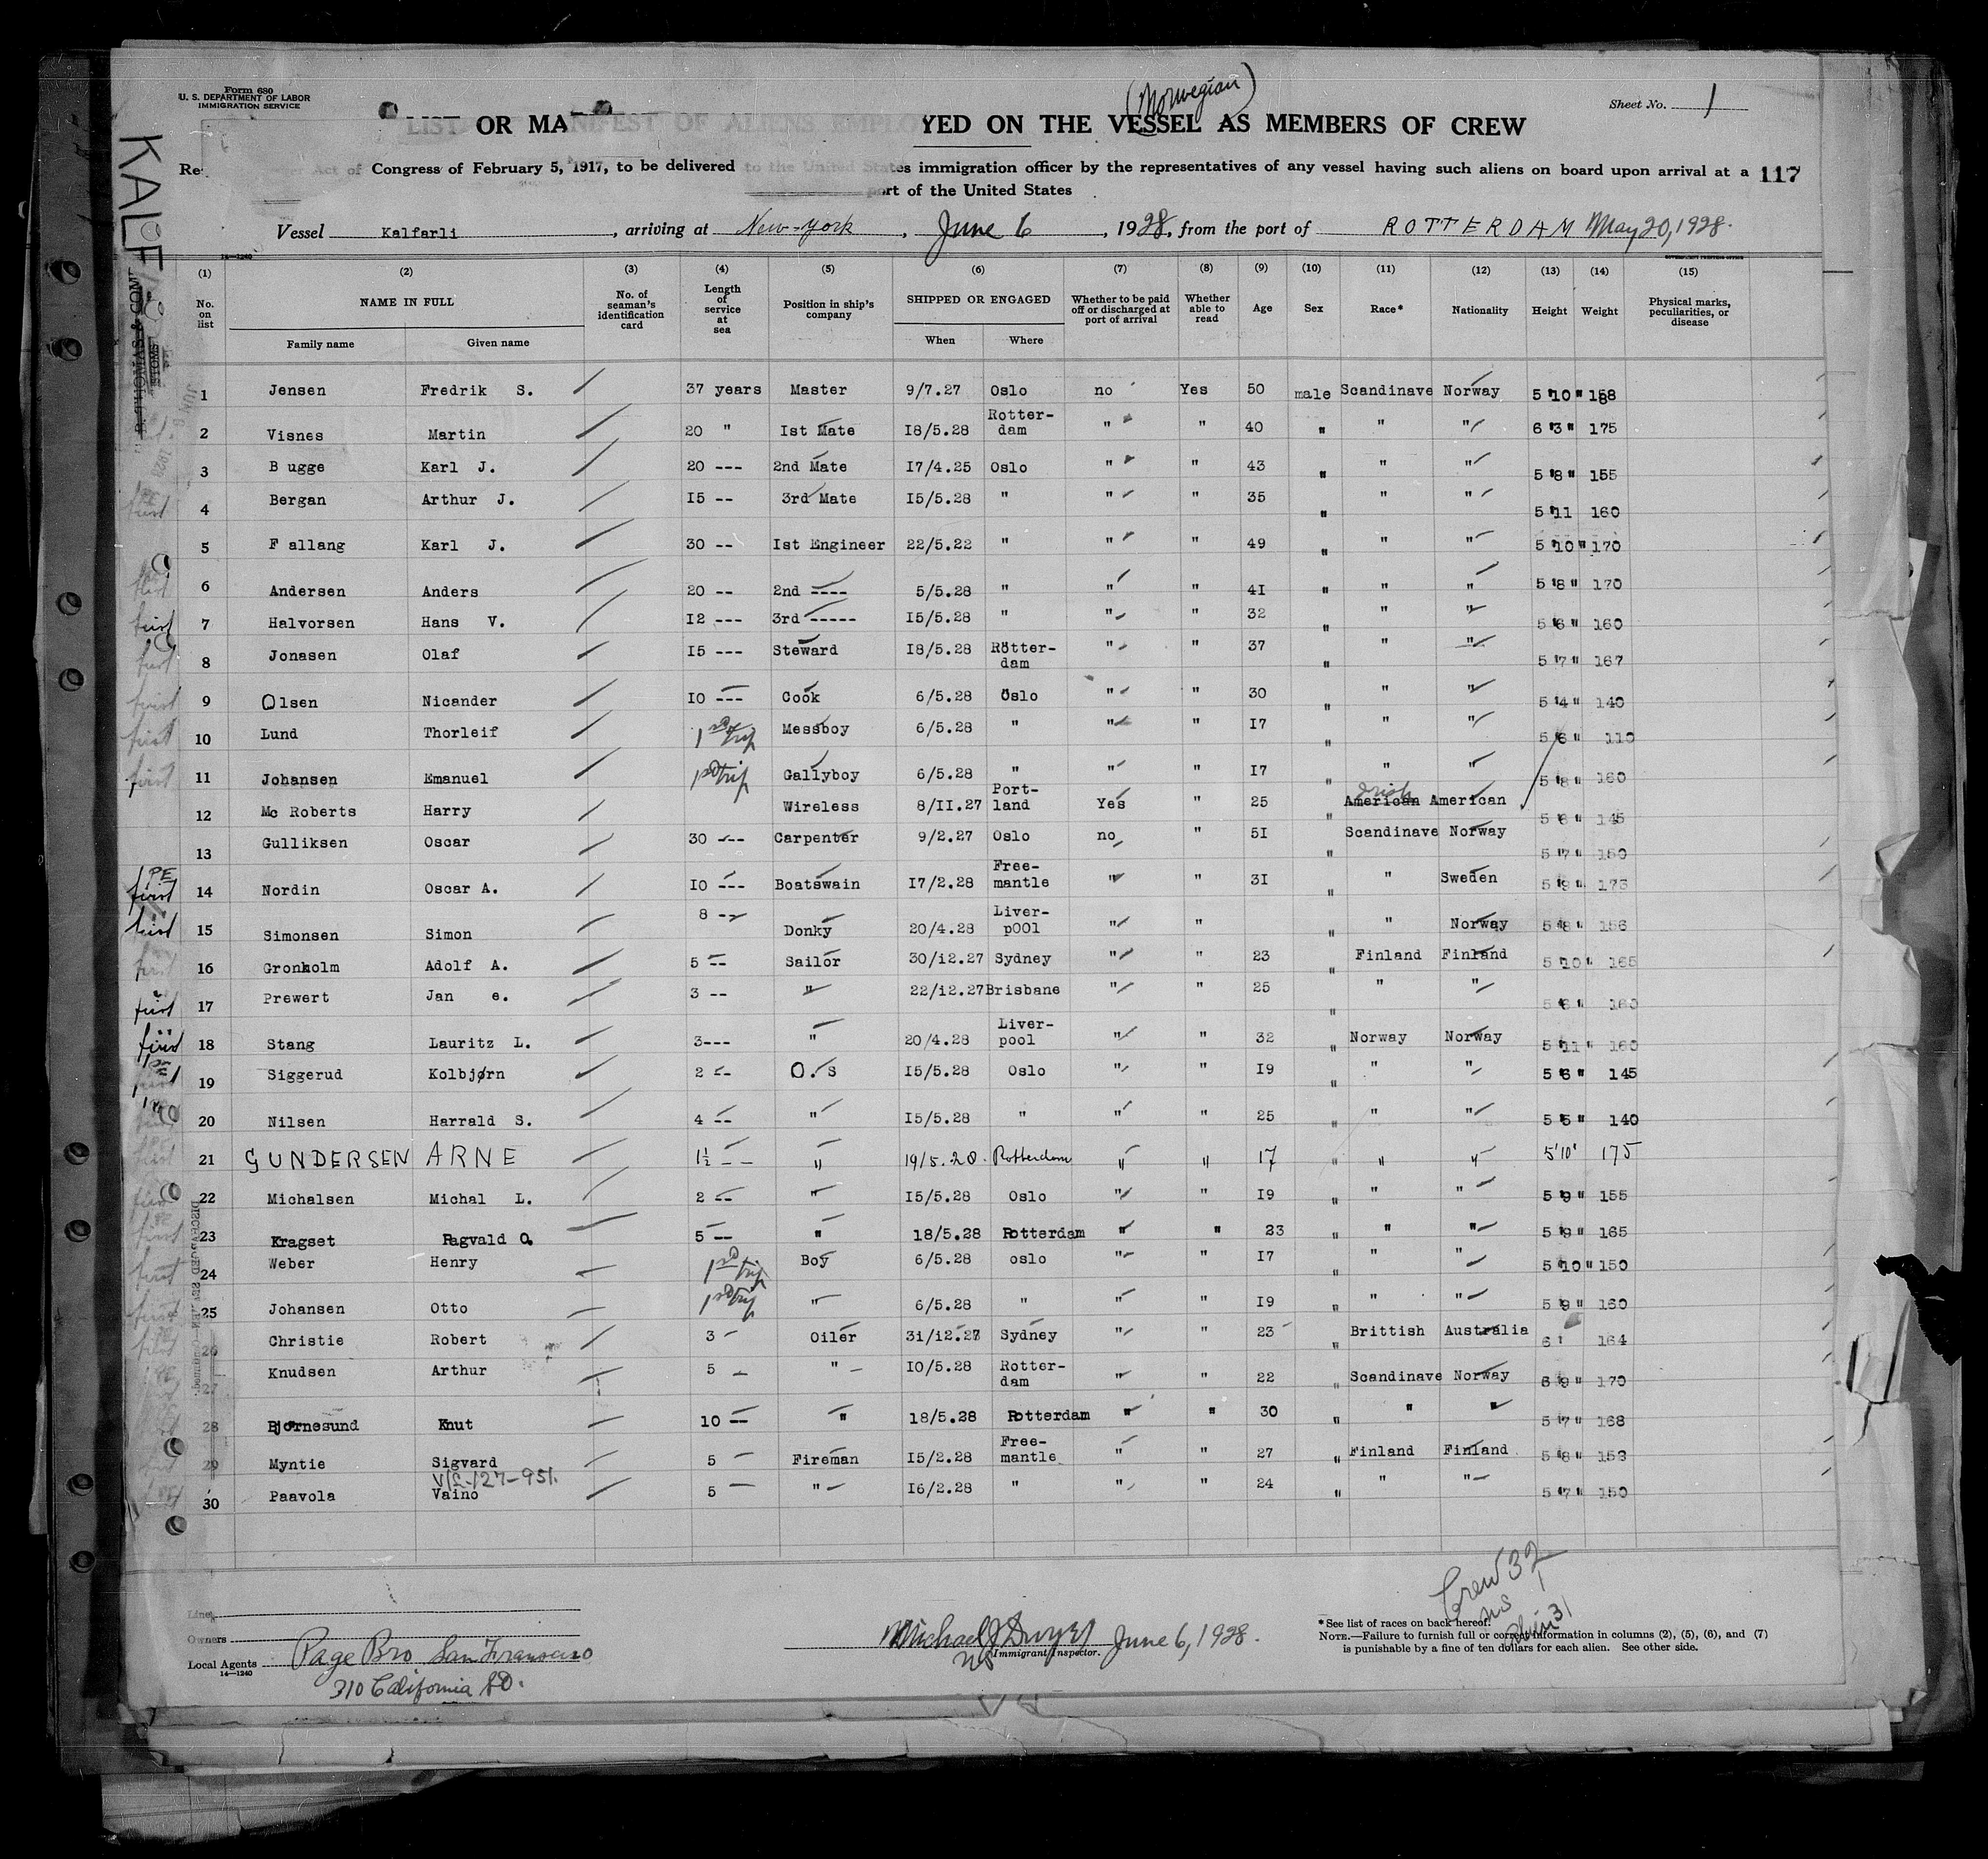 Form 680
U. S. DEPARTMENT OF LABOR
IMMIGRATION SERVICE
(Norwegian)
Sheet No. 1
LIST OR MANIFEST OF ALIENS EMPLOYED ON THE VESSEL AS MEMBERS OF CREW
Act of Congress of February 5, 1917, to be delivered to the United States immigration officer by the representatives of any vessel having such aliens on board upon arrival at a
port of the United States
117
Vessel Kalfarli, arriving at New-York, June 6, 1928, from the port of ROTTERDAM May 20, 1928.
(1) (2) (3) (4) (5) (6) (7) (8) (9) (10) (11) (12) (13) (14) (15)
No. on list NAME IN FULL Family name Given name No. of seaman's identification card Length of service at sea Position in ship's company SHIPPED OR ENGAGED When Where Whether to be paid off or discharged at port of arrival Whether able to read Age Sex Race* Nationality Height Weight Physical marks, peculiarities, or disease
1 Jensen Fredrik S. 37 years Master 9/7.27 Oslo no Yes 50 male Scandinave Norway 5 10" 158
2 Visnes Martin 20 " Ist Mate 18/5.28 Rotter-dam " " 40 " " " 6 3" 175
3 B ugge Karl J. 20 --- 2nd Mate 17/4.25 Oslo " " 43 " " " 5 8" 155
4 Bergan Arthur J. 15 -- 3rd Mate 15/5.28 " " " 35 " " " 5 11 160
5 F allang Karl J. 30 -- Ist Engineer 22/5.22 " " " 49 " " " 5 10" 170
6 Andersen Anders 20 -- 2nd ---- 5/5.28 " " " 41 " " " 5 8" 170
7 Halvorsen Hans V. 12 --- 3rd ----- 15/5.28 " " " 32 " " " 5 6" 160
8 Jonasen Olaf 15 --- Steward 18/5.28 Rotter-dam " " 37 " " " 5 7" 167
9 Olsen Nicander 10 --- Cook 6/5.28 Oslo " " 30 " " " 5 4" 140
10 Lund Thorleif 1st trip Messboy 6/5.28 " " " 17 " " " 5 6" 110
11 Johansen Emanuel 1st trip Gallyboy 6/5.28 " " " 17 " " " 5 8" 160
12 Mc Roberts Harry Wireless 8/11.27 Port-land Yes " 25 " American Irish American 5 6" 145
13 Gulliksen Oscar 30 --- Carpenter 9/2.27 Oslo no " 51 " Scandinave Norway 5 7" 150
14 Nordin Oscar A. 10 --- Boatswain 17/2.28 Free-mantle " " 31 " " Sweden 5 9" 173
15 Simonsen Simon 8 -- Donky 20/4.28 Liver-p00l " " " " Norway 5 8" 156
16 Gronholm Adolf A. 5 -- Sailor 30/12.27 Sydney " " 23 " Finland Finland 5 10" 165
17 Prewert Jan e. 3 -- " 22/12.27 Brisbane " " 25 " " " 5 6" 160
18 Stang Lauritz L. 3--- " 20/4.28 Liver-pool " " 32 " Norway Norway 5 11" 160
19 Siggerud Kolbjørn 2 -- O. s 15/5.28 Oslo " " 19 " " " 5 6" 145
20 Nilsen Harrald S. 4 -- " 15/5.28 " " " 25 " " " 5 5" 140
21 GUNDERSEN ARNE 1½ -- " 19/5.28. Rotterdam " " 17 " " " 5'10' 175
22 Michalsen Michal L. 2 -- " 15/5.28 Oslo " " 19 " " " 5 9" 155
23 Kragset Ragvald O. 5 -- " 18/5.28 Rotterdam " " 23 " " " 5 9" 165
24 Weber Henry 1st trip Boy 6/5.28 oslo " " 17 " " " 5 10" 150
25 Johansen Otto 1st trip " 6/5.28 " " " 19 " " " 5 9" 160
26 Christie Robert 3 - Oiler 31/12.27 Sydney " " 23 " Brittish Australia 6 ' 164
27 Knudsen Arthur 5 - " 10/5.28 Rotter-dam " " 22 " Scandinave Norway 6 9" 170
28 Bjornesund Knut 10 -- " 18/5.28 Rotterdam " " 30 " " " 5 7" 168
29 Myntie Sigvard 5 - Fireman 15/2.28 Free-mantle " " 27 " Finland Finland 5 8" 153
V/L-127-951.
30 Paavola Vaino 5 - " 16/2.28 " " " 24 " " " 5 7" 150
Crew 32
1
Alien 31
Line
Owners
Local Agents Page Bro San Fransisco
14—1240
310 California St.
Michael J Dwyer June 6, 1928.
Immigrant Inspector.
*See list of races on back hereof.
NOTE.—Failure to furnish full or correct information in columns (2), (5), (6), and (7)
is punishable by a fine of ten dollars for each alien. See other side.